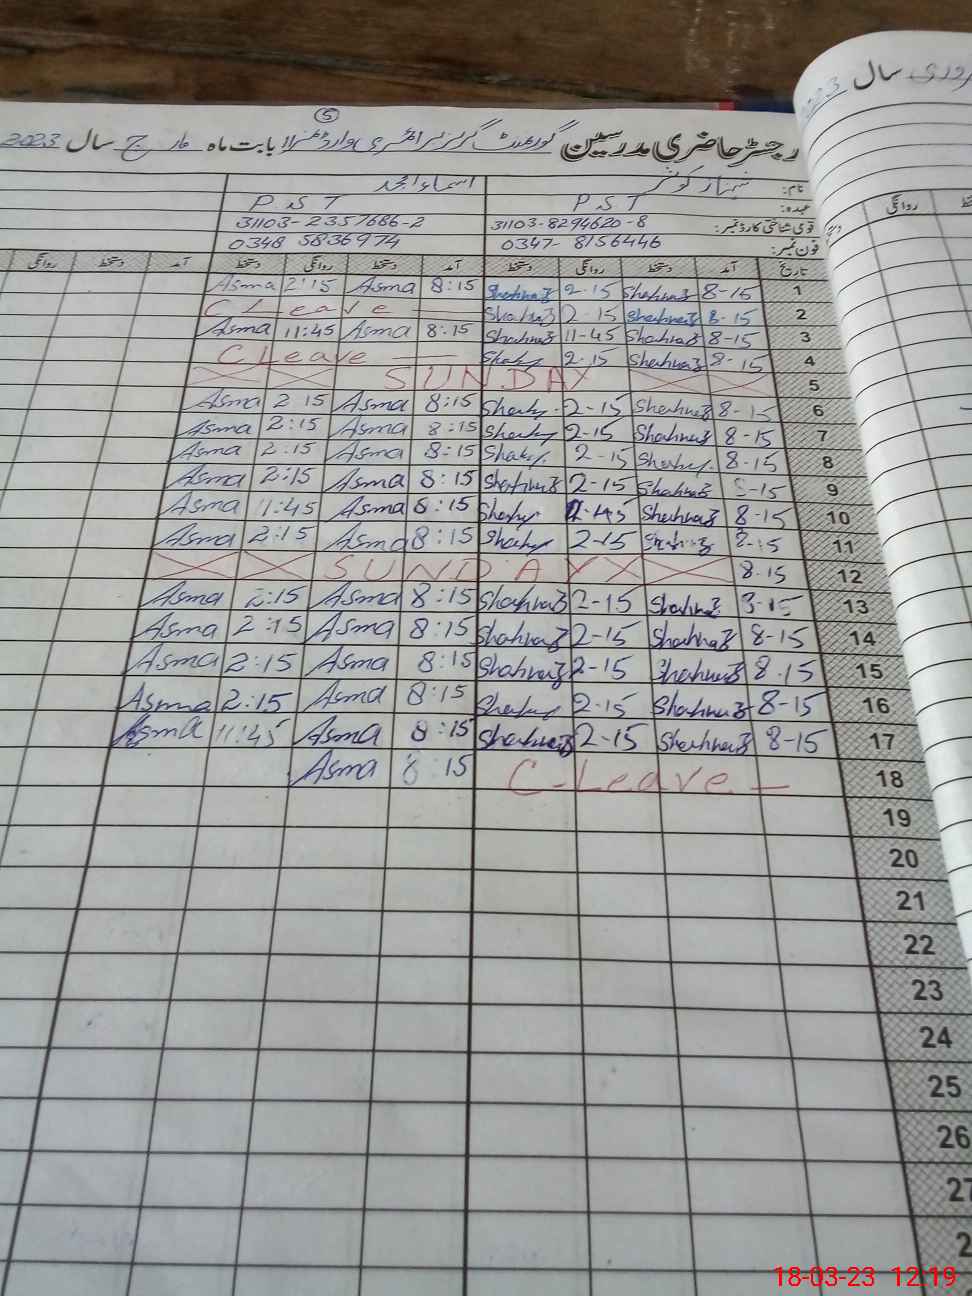 سال 2023
رجسٹر حاضری مدرسین گورنمنٹ گرلز پرائمری بابت ماہ مارچ سال 2023
5
نام: شہناز کوثر اسماء امجد
عہدہ: P S T P S T
قومی شناختی کارڈ نمبر: 31103-8294620-8 31103-2357686-2
فون نمبر: 0347-8156446 0348 5836974
تاریخ آمد دستخط روانگی دستخط آمد دستخط روانگی دستخط آمد دستخط روانگی
روانگی
1 8-15 Shahnaz 2-15 Shahnaz 8:15 Asma 2:15 Asma
2 8-15 Shahnaz 2-15 Shahnaz C Leave
3 8-15 Shahnaz 11-45 Shahnaz 8:15 Asma 11:45 Asma
4 8-15 Shahnaz 2-15 C Leave
5 SUNDAY
6 8-15 Shahnaz 2-15 8:15 Asma 2:15 Asma
7 8-15 Shahnaz 2-15 8:15 Asma 2:15 Asma
8 8-15 2-15 8:15 Asma 2:15 Asma
9 8-15 Shahnaz 2-15 Shahnaz 8:15 Asma 2:15 Asma
10 8-15 Shahnaz 8:15 Asma 11:45 Asma
11 8-15 Shahnaz 2-15 8:15 Asma 2:15 Asma
12 8-15 SUNDAY
13 8-15 Shahnaz 2-15 Shahnaz 8:15 Asma 2:15 Asma
14 8-15 Shahnaz 2-15 Shahnaz 8:15 Asma 2:15 Asma
15 8-15 Shahnaz 2-15 Shahnaz 8:15 Asma 2:15 Asma
16 8-15 Shahnaz 2-15 8:15 Asma 2:15 Asma
17 8-15 Shahnaz 2-15 Shahnaz 8:15 Asma 11:45 Asma
18 C-Leave 8:15 Asma
19
20
21
22
23
24
25
26
27
2
18-03-23 12:19